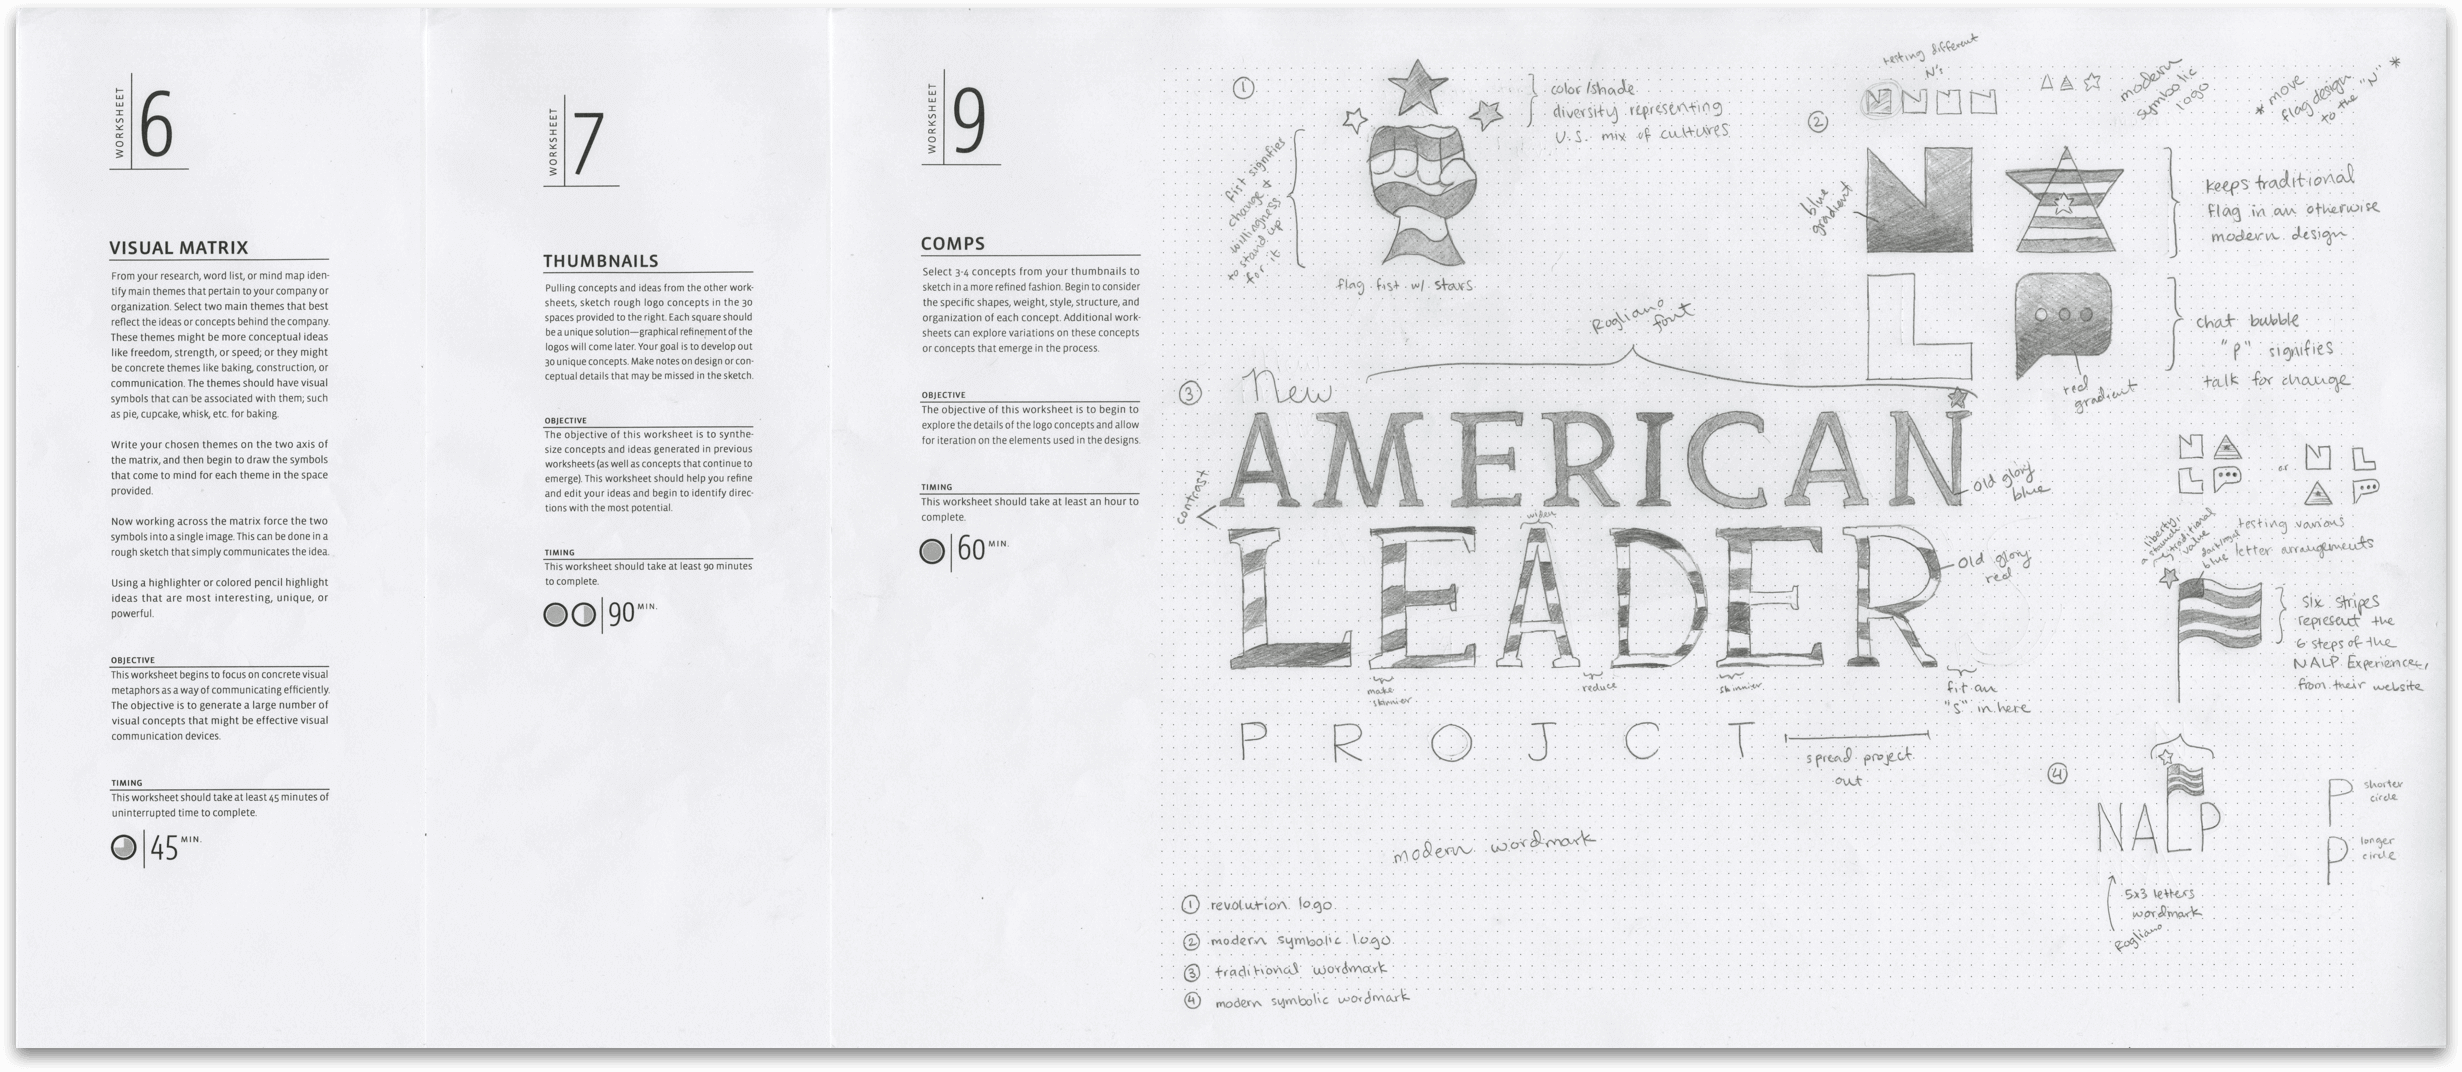 WORKSHEET 6
VISUAL MATRIX
From your research, word list, or mind map iden-
tify main themes that pertain to your company or
organization. Select two main themes that best
reflect the ideas or concepts behind the company.
These themes might be more conceptual ideas
like freedom, strength, or speed; or they might
be concrete themes like baking, construction, or
communication. The themes should have visual
symbols that can be associated with them; such
as pie, cupcake, whisk, etc. for baking.
Write your chosen themes on the two axis of
the matrix, and then begin to draw the symbols
that come to mind for each theme in the space
provided.
Now working across the matrix force the two
symbols into a single image. This can be done in a
rough sketch that simply communicates the idea.
Using a highlighter or colored pencil highlight
ideas that are most interesting, unique, or
powerful.
OBJECTIVE
This worksheet begins to focus on concrete visual
metaphors as a way of communicating efficiently.
The objective is to generate a large number of
visual concepts that might be effective visual
communication devices.
TIMING
This worksheet should take at least 45 minutes of
uninterrupted time to complete.
45 MIN.
WORKSHEET 7
THUMBNAILS
Pulling concepts and ideas from the other work-
sheets, sketch rough logo concepts in the 30
spaces provided to the right. Each square should
be a unique solution—graphical refinement of the
logos will come later. Your goal is to develop out
30 unique concepts. Make notes on design or con-
ceptual details that may be missed in the sketch.
OBJECTIVE
The objective of this worksheet is to synthe-
size concepts and ideas generated in previous
worksheets (as well as concepts that continue to
emerge). This worksheet should help you refine
and edit your ideas and begin to identify direc-
tions with the most potential.
TIMING
This worksheet should take at least 90 minutes
to complete.
90 MIN.
WORKSHEET 9
COMPS
Select 3-4 concepts from your thumbnails to
sketch in a more refined fashion. Begin to consider
the specific shapes, weight, style, structure, and
organization of each concept. Additional work-
sheets can explore variations on these concepts
or concepts that emerge in the process.
OBJECTIVE
The objective of this worksheet is to begin to
explore the details of the logo concepts and allow
for iteration on the elements used in the designs.
TIMING
This worksheet should take at least an hour to
complete.
60 MIN.
1
color/shade
diversity representing
U.S. mix of cultures
fist signifies
change &
willingness
to stand up
for it
flag fist w/ stars
2
testing different
N's
modern
symbolic
logo
* move
flag design
to the "N" *
blue
gradient
keeps traditional
flag in an otherwise
modern design
chat bubble
"P" signifies
talk for change
red
gradient
N
L
3
Rogliano
font
New
AMERICAN
LEADER
P R O J C T
contrast
old glory
blue
widen
old glory
red
make
skinnier
reduce
skinnier
fit an
"S" in here
spread project
out
modern wordmark
or
testing various
letter arrangements
liberty,
staunch
traditional
value
dark/royal
blue
six stripes
represent the
6 steps of the
NALP Experience,
from their website
4
NALP
5x3 letters
wordmark
Rogliano
P shorter
circle
P longer
circle
1 revolution logo
2 modern symbolic logo
3 traditional wordmark
4 modern symbolic wordmark